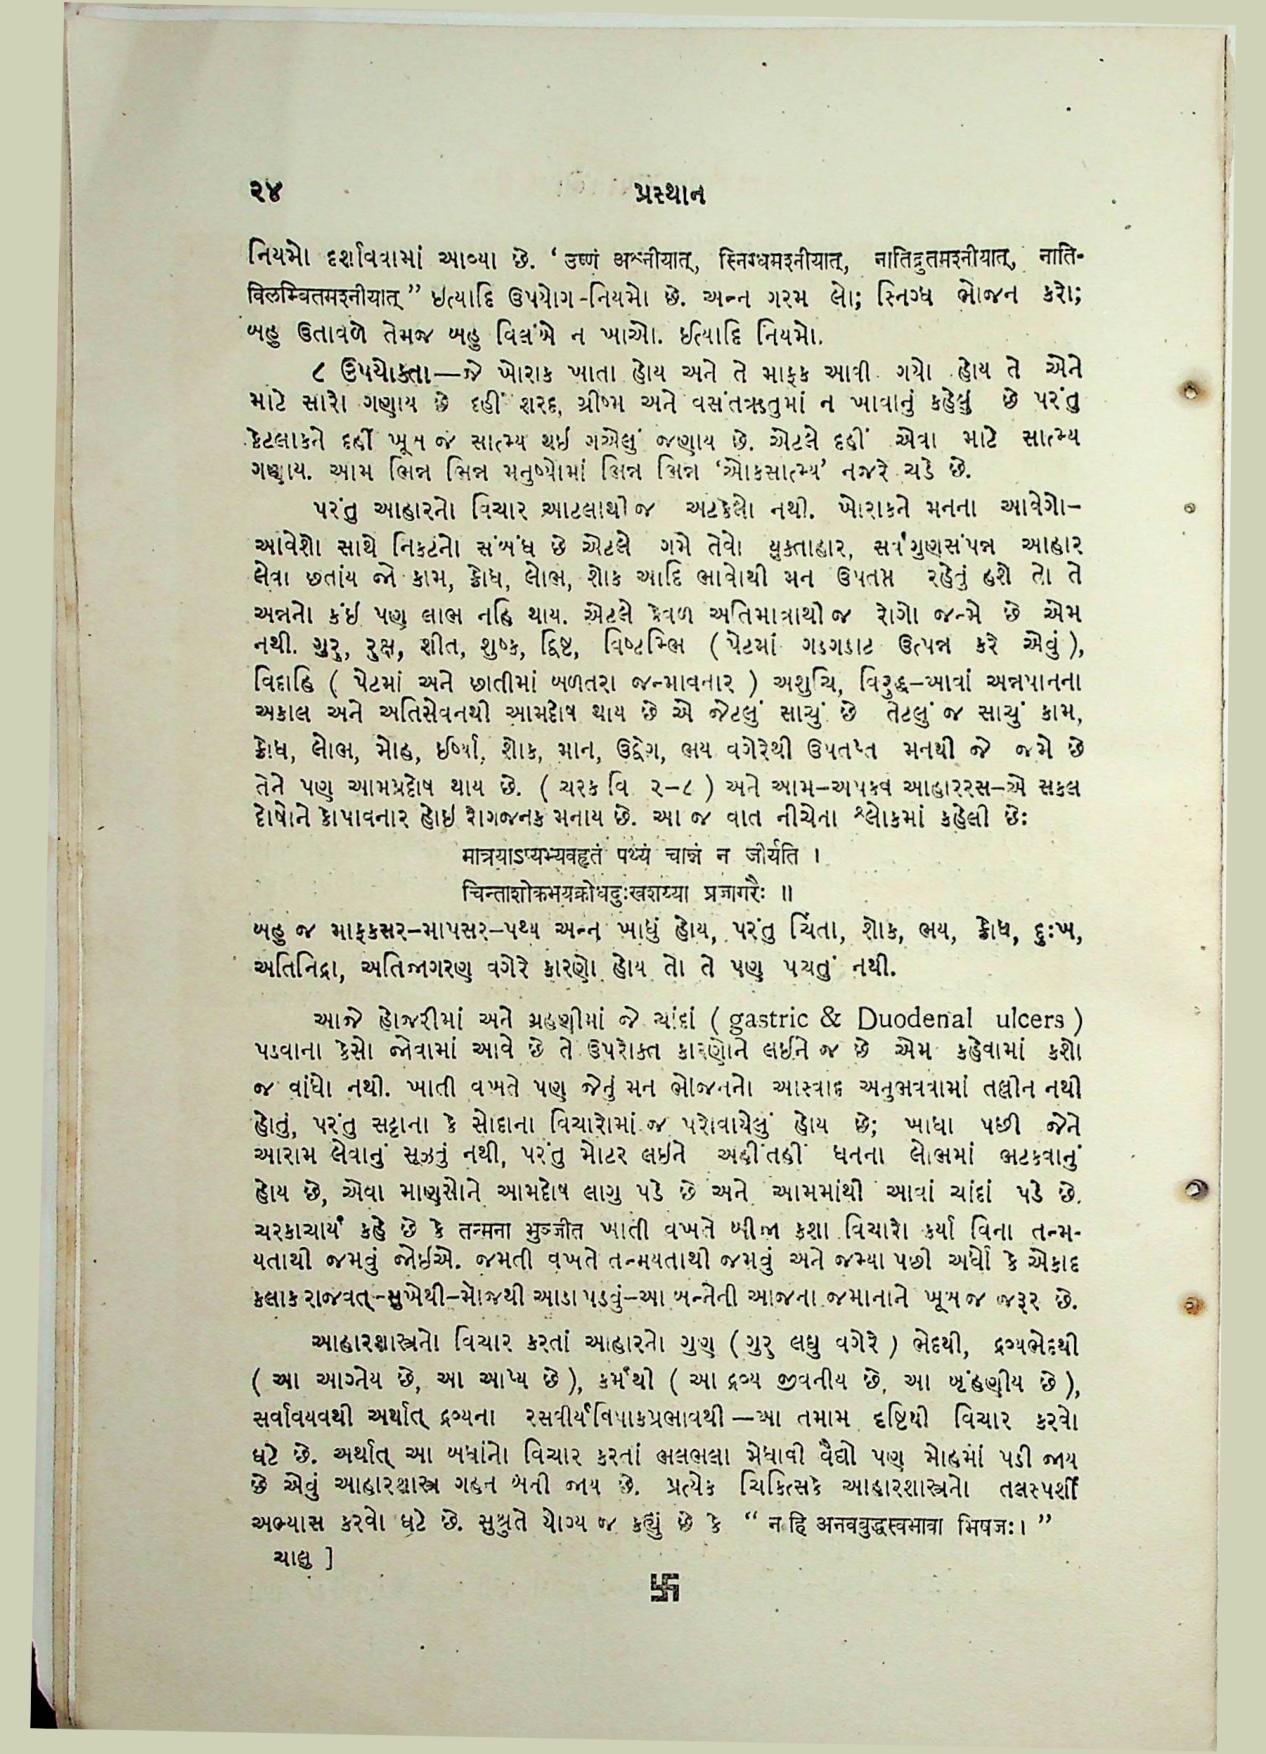 ૨૪
પ્રસ્થાન
નિયમો દર્શાવવામાં આવ્યા છે. ‘उष्णं अश्नीयात्, स्निग्धमश्नीयात्, नातिद्रुतमश्नीयात्, नाति-
विलम्बितमश्नीयात्” ઇત્યાદિ ઉપયોગ-નિયમો છે. અન્ન ગરમ લો; સ્નિગ્ધ ભોજન કરો;
બહુ ઉતાવળે તેમજ બહુ વિલંબે ન ખાઓ. ઈત્યાદિ નિયમો.
૮ ઉપયોક્તા—જે ખોરાક ખાતા હોય અને તે માફક આવી ગયો હોય તે એને
માટે સારો ગણાય છે દહીં શરદ, ગ્રીષ્મ અને વસંતઋતુમાં ન ખાવાનું કહેલું છે પરંતુ
કેટલાકને દહીં ખૂબ જ સાત્મ્ય થઇ ગએલું જણાય છે. એટલે દહીં એવા માટે સાત્મ્ય
ગણાય. આમ ભિન્ન ભિન્ન મનુષ્યોમાં ભિન્ન ભિન્ન ‘ઓકસાત્મ્ય’ નજરે ચડે છે.
પરંતુ આહારનો વિચાર આટલાથી જ અટકેલો નથી. ખોરાકને મનના આવેગો-
આવેશો સાથે નિકટનો સંબંધ છે એટલે ગમે તેવો યુક્તાહાર, સર્વગુણસંપન્ન આહાર
લેવા છતાંય જો કામ, ક્રોધ, લોભ, શોક આદિ ભાવોથી મન ઉપતપ્ત રહેતું હશે તો તે
અન્નનો કંઇ પણ લાભ નહિ થાય. એટલે કેવળ અતિમાત્રાથી જ રોગો જન્મે છે એમ
નથી. ગુરુ, રુક્ષ, શીત, શુષ્ક, દ્વિષ્ટ, વિષ્ટમ્ભિ ( પેટમાં ગડગડાટ ઉત્પન્ન કરે એવું ),
વિદાહિ ( પેટમાં અને છાતીમાં બળતરા જન્માવનાર ) અશુચિ, વિરુદ્ધ-આવાં અન્નપાનના
અકાલ અને અતિસેવનથી આમદોષ થાય છે એ જેટલું સાચું છે તેટલું જ સાચું કામ,
ક્રોધ, લોભ, મોહ, ઈર્ષ્યા, શોક, માન, ઉદ્વેગ, ભય વગેરેથી ઉપતપ્ત મનથી જે જમે છે
તેને પણ આમપ્રદોષ થાય છે. ( ચરક વિ ૨-૮ ) અને આમ-અપકવ આહારરસ-એ સકલ
દોષોને કોપાવનાર હોઇ રોગજનક મનાય છે. આ જ વાત નીચેના શ્લોકમાં કહેલી છેઃ
मात्रयाऽप्यभ्यवहृतं पथ्यं चान्नं न जीर्यति ।
चिन्ताशोकभयक्रोधदुःखशय्या प्रजागरैः ॥
બહુ જ માફકસર-માપસર-પથ્ય અન્ન ખાધું હોય, પરંતુ ચિંતા, શોક, ભય, ક્રોધ, દુઃખ,
અતિનિદ્રા, અતિજાગરણ વગેરે કારણો હોય તો તે પણ પચતું નથી.
આજે હોજરીમાં અને ગ્રહણીમાં જે ચાંદાં ( gastric & Duodenal ulcers )
પડવાના કેસો જોવામાં આવે છે તે ઉપરોક્ત કારણોને લઈને જ છે એમ કહેવામાં કશો
જ વાંધો નથી. ખાતી વખતે પણ જેનું મન ભોજનનો આસ્વાદ અનુભવવામાં તલ્લીન નથી
હોતું, પરંતુ સટ્ટાના કે સોદાના વિચારોમાં જ પરોવાયેલું હોય છે; ખાધા પછી જેને
આરામ લેવાનું સૂઝતું નથી, પરંતુ મોટર લઇને અહીંતહીં ધનના લોભમાં ભટકવાનું
હોય છે, એવા માણસોને આમદોષ લાગુ પડે છે અને આમમાંથી આવાં ચાંદાં પડે છે.
ચરકાચાર્ય કહે છે કે तन्मना भुञ्जीत ખાતી વખતે બીજા કશા વિચારો કર્યા વિના તન્મ-
યતાથી જમવું જોઇએ. જમતી વખતે તન્મયતાથી જમવું અને જમ્યા પછી અર્ધો કે એકાદ
કલાક રાજવત્-સુખેથી-મોજથી આડા પડવું-આ બન્નેની આજના જમાનાને ખૂબજ જરૂર છે.
આહારશાસ્ત્રનો વિચાર કરતાં આહારનો ગુણ ( ગુરુ લઘુ વગેરે ) ભેદથી, દ્રવ્યભેદથી
( આ આગ્નેય છે, આ આપ્ય છે ), કર્મથી ( આ દ્રવ્ય જીવનીય છે, આ બૃંહણીય છે ),
સર્વાવયવથી અર્થાત્ દ્રવ્યના રસવીર્યવિપાકપ્રભાવથી —આ તમામ દૃષ્ટિથી વિચાર કરવો
ઘટે છે. અર્થાત્ આ બધાંનો વિચાર કરતાં ભલભલા મેધાવી વૈદ્યો પણ મોહમાં પડી જાય
છે એવું આહારશાસ્ત્ર ગહન બની જાય છે. પ્રત્યેક ચિકિત્સકે આહારશાસ્ત્રનો તલસ્પર્શી
અભ્યાસ કરવો ઘટે છે. સુશ્રુતે યોગ્ય જ કહ્યું છે કે “ न हि अनवबुद्धस्वभावा भिषजः। ”
ચાલુ ]